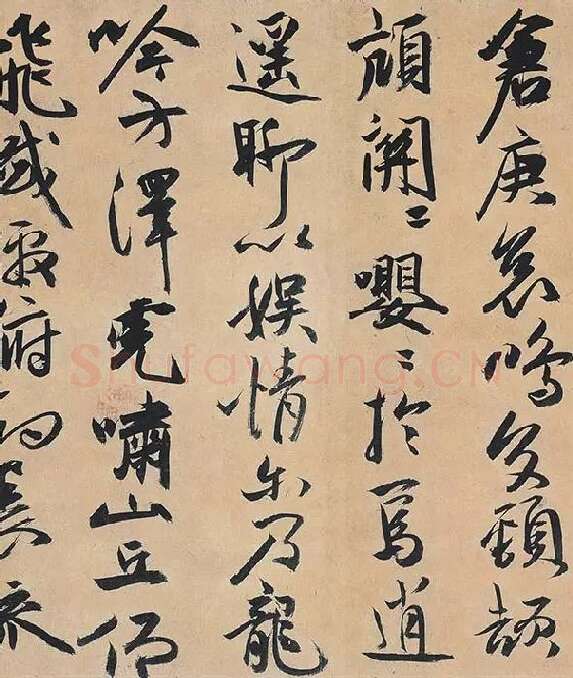 倉庚哀鳴交頸頡
頏關〻嚶〻於焉逍
遙聊以娛情尔乃龍
吟方澤虎嘯山丘仰
飛纖繳俯釣長流
Shufawang.CN